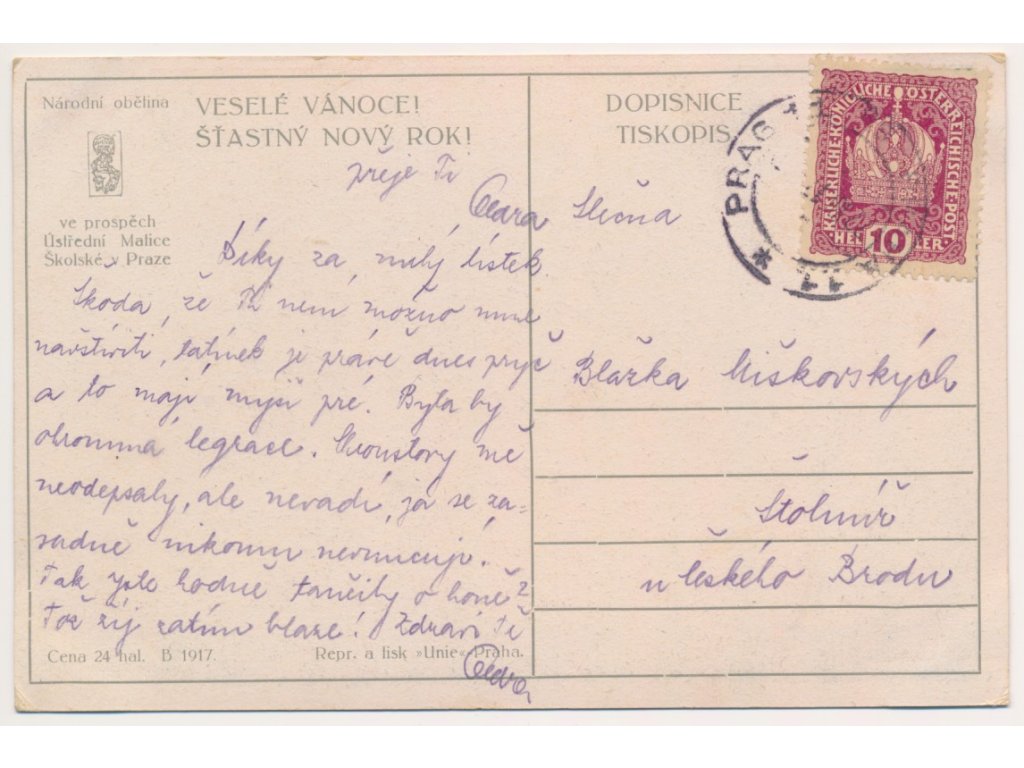 Národní obětina
VESELÉ VÁNOCE!
ŠŤASTNÝ NOVÝ ROK!
ve prospěch
Ústřední Matice
Školské v Praze
přeje Ti
Díky za milý lístek.
Škoda, že Ti není možno mne
navštíviti, tatínek je právě dnes pryč
a to mají myši pré. Byla by
ohromná legrace. mě
neodepsaly, ale nevadí, já se zá-
sadně nikomu nevnucuji.
Tak jste hodně tančily o
Tož žij zatím blaze! Zdraví Tě
Cena 24 hal. B 1917.
Repr. a tisk »Unie« Praha.
DOPISNICE
TISKOPIS
PRAG
11
KAISERLICHE·KÖNIGLICHE ÖSTERREICHISCHE·POST
HELLER
10
Slečna
Blažka Miškovských
Štolmíř
u Českého Brodu